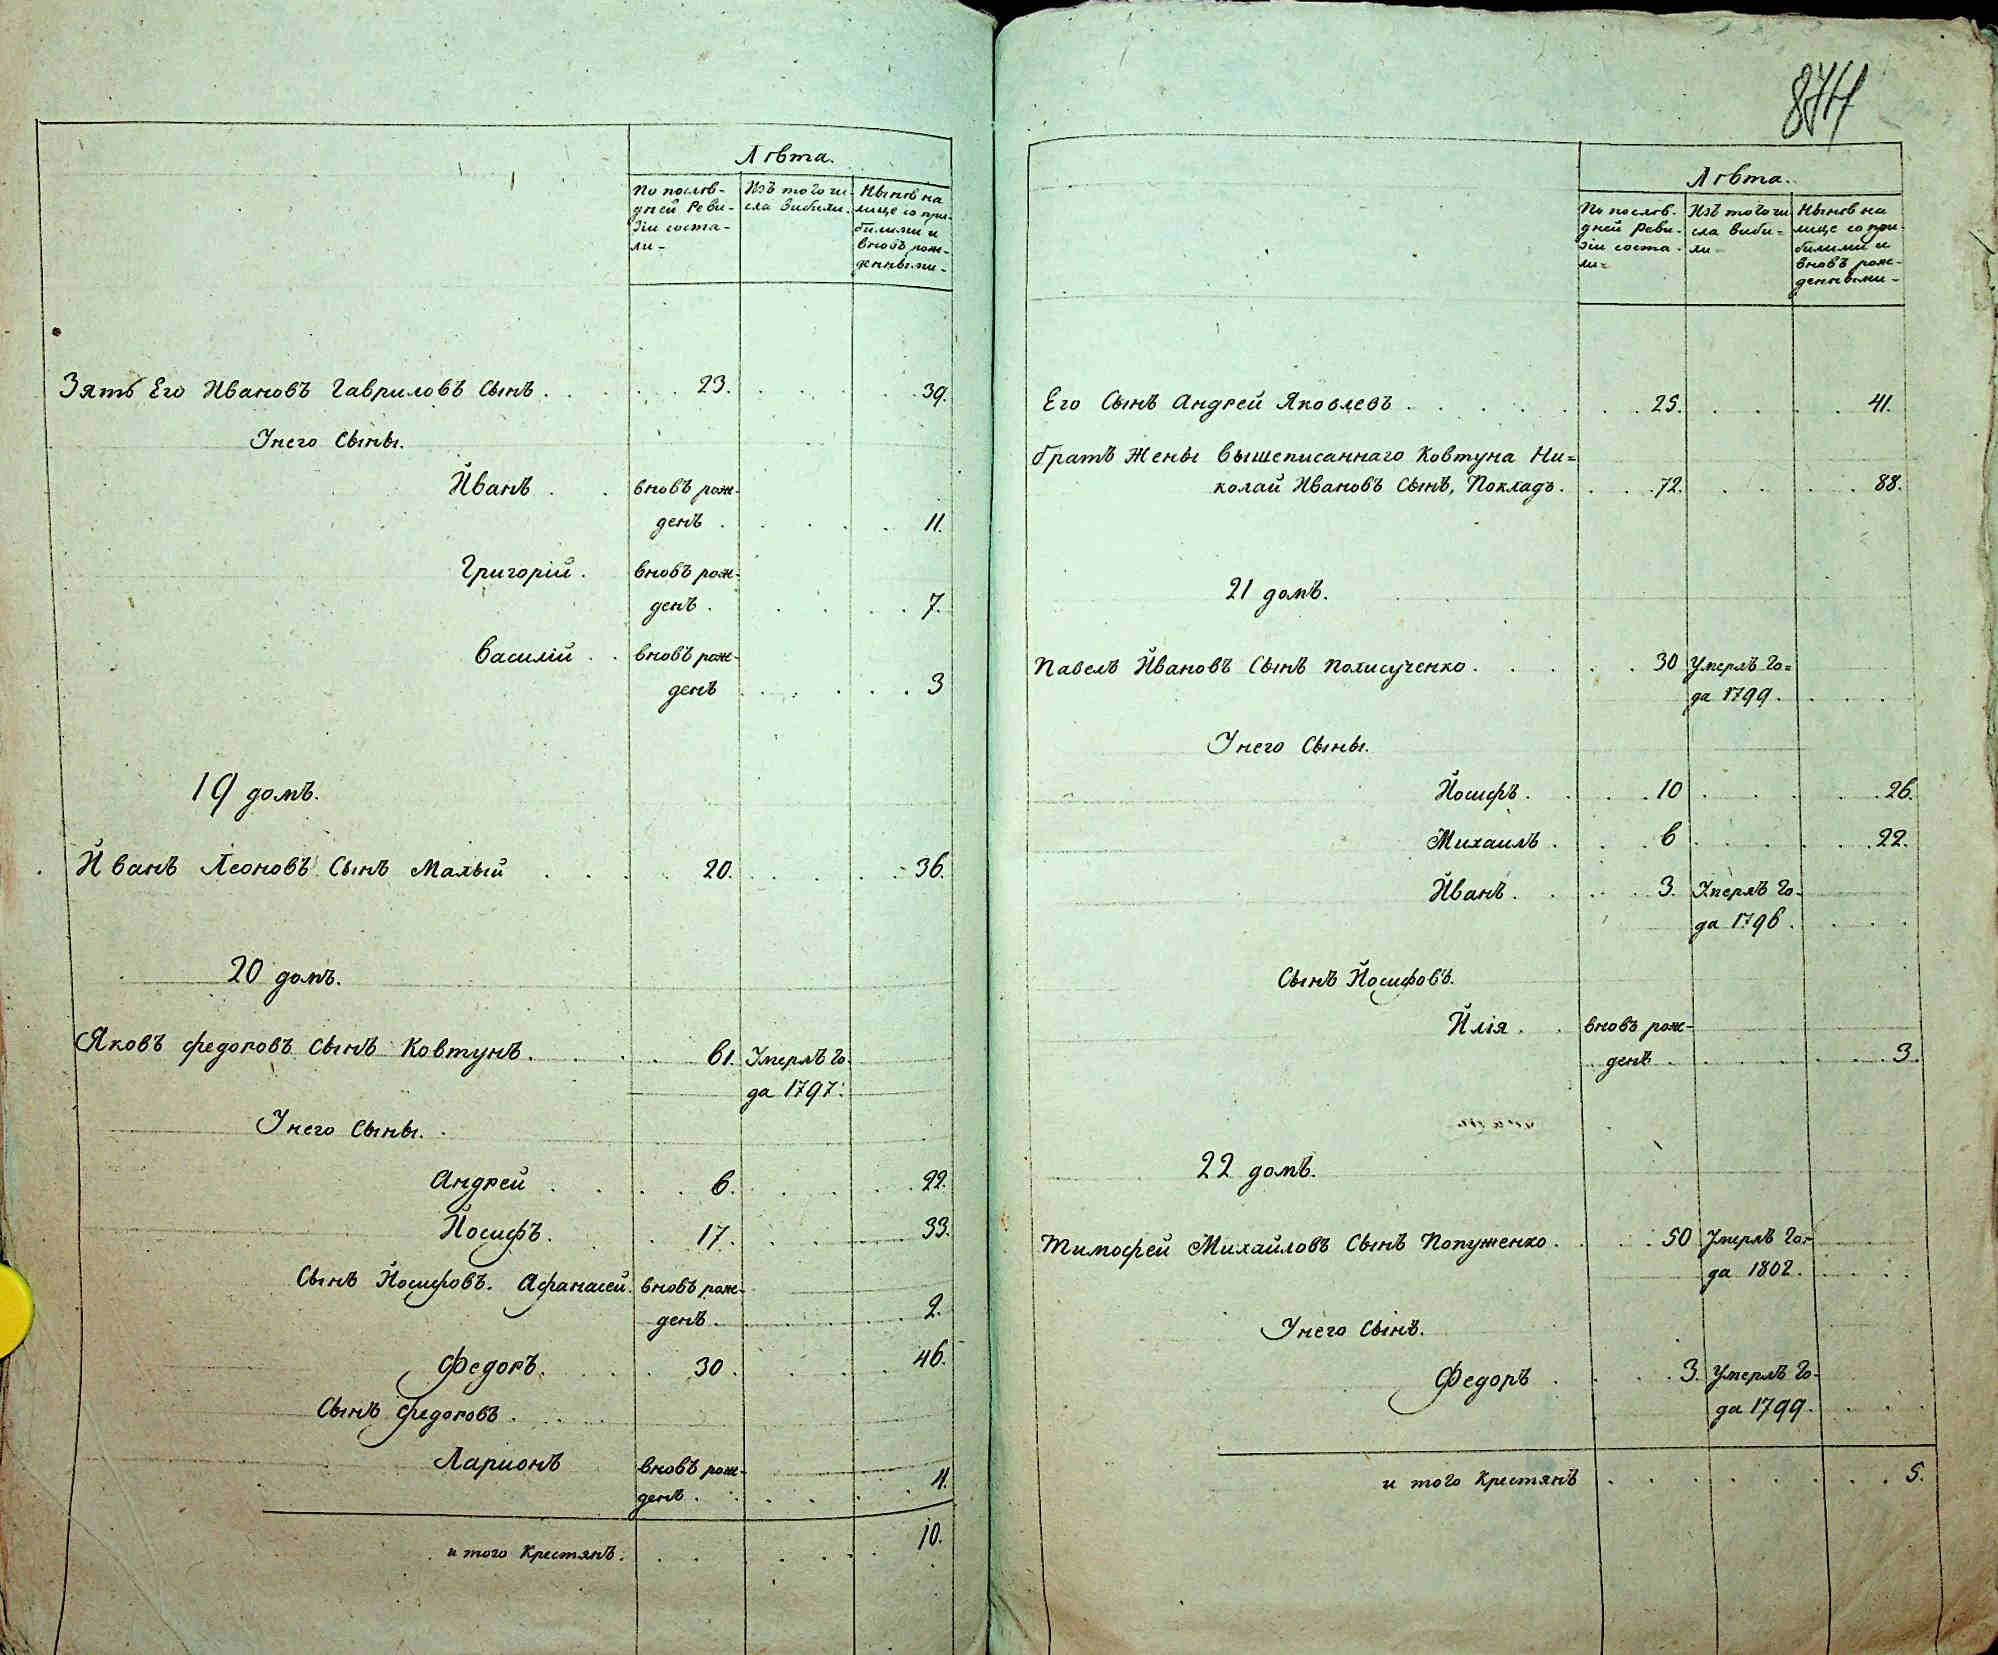 Лѣта.
По послѣ-
дней Реви-
зіи соста-
ли-
Изъ того чи-
сла выбыли.
Нынѣ на
лице со при-
былыми и
вновь рож-
денными-
Зять Его Ивановъ Гавриловъ Сынъ . . . . 23. . . . . 39.
Унего Сыны.
Йванъ . . вновь рож-
денъ . . . . . 11.
Григорій . вновь рож-
денъ . . . . . 7.
Василій . . вновь рож-
денъ . . . . . 3
19 домъ.
Йванъ Леоновъ Сынъ Малый . . . . 20. . . . . 36.
20 домъ.
Яковъ Федоровъ Сынъ Ковтунъ . . . . 61. Умерлъ го-
да 1797.
Унего Сыны.
Андрей . . . . 6. . . . . 22.
Йосифъ. . . 17. . . . . 33.
Сынъ Йосифовъ. Афанасей. вновь рож-
денъ . . . . . 2.
Федоръ. . . . 30 . . . . 46.
Сынъ Федоровъ . . .
Ларионъ вновь рож-
денъ . . . . . 4.
и того Крестянъ . . . . . . 10.
874
Лѣта.
По послѣ-
дней Реви-
зіи соста-
ли-
Изъ того чи-
сла выбы-
ли-
Нынѣ на
лице со при-
былыми и
вновь рож-
денными-
Его Сынъ Андрей Яковлевъ . . . . . 25. . . . . 41.
братъ Жены вышеписаннаго Ковтуна Ни-
колай Ивановъ Сынъ, Покладъ. . . . 72. . . . . 88.
21 домъ.
Павелъ Йвановъ Сынъ Полисученко . . . . . 30 Умерлъ го-
да 1799. . . .
Унего Сыны.
Йосифъ. . . . 10 . . . . 26.
Михаилъ . . . 6 . . . . 22.
Йванъ . . . . 3. Умерлъ го-
да 1796 . . . .
Сынъ Йосифовъ.
Илія . . вновь рож-
денъ . . . . . 3.
22 домъ.
Тимофей Михайловъ Сынъ Попуженко . . . 50 Умерлъ го-
да 1802. . . .
Унего Сынъ.
Федоръ . . . . 3. Умерлъ го-
да 1799. . . .
и того Крестянъ . . . . . . . 5.